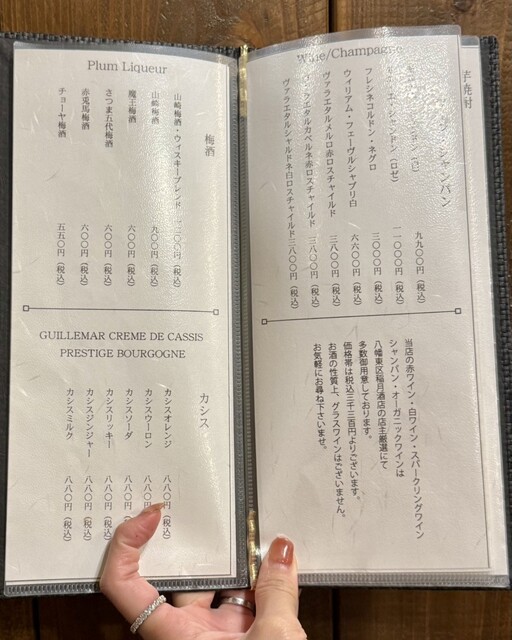 Plum Liqueur
梅酒
山崎梅酒・ウィスキーブレンド
山崎梅酒 九〇〇円(税込)
魔王梅酒 六〇〇円(税込)
さつま五代梅酒 六〇〇円(税込)
赤兎馬梅酒 六〇〇円(税込)
チョーヤ梅酒 五五〇円(税込)
GUILLEMAR CREME DE CASSIS
PRESTIGE BOURGOGNE
カシス
カシスオレンジ 八八〇円(税込)
カシスウーロン 八八〇円(税込)
カシスソーダ 八八〇円(税込)
カシスリッキー 八八〇円(税込)
カシスジンジャー 八八〇円(税込)
カシスミルク 八八〇円(税込)
Wine/Champagne
シャンパン
九九〇〇円(税込)
シャンドン(ロゼ) 一一〇〇〇円(税込)
フレシネコルドン・ネグロ 三〇〇〇円(税込)
ウィリアム・フェーヴルシャブリ白 六六〇〇円(税込)
ヴァラエタルメルロ赤ロスチャイルド 三八〇〇円(税込)
エタルカベルネ赤ロスチャイルド 三八〇〇円(税込)
ヴァラエタルシャルドネ白ロスチャイルド 三八〇〇円(税込)
当店の赤ワイン・白ワイン・スパークリングワイン
シャンパン・オーガニックワインは
八幡東区稲月酒店の店主厳選にて
多数御用意しております。
価格帯は税込三千三百円よりございます。
お酒の性質上、グラスワインはございません。
お気軽にお尋ね下さいませ。
芋焼酎